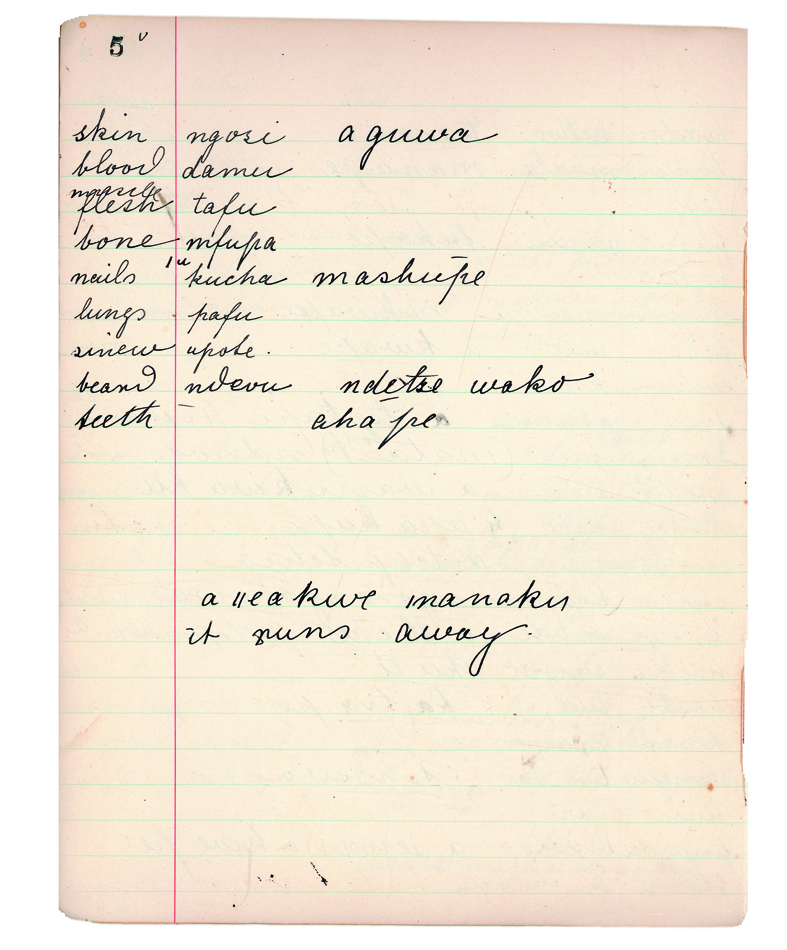 5
skin ngozi aguwa
blood damu
muscle
flesh tafu
bone mfupa
nails kucha mashupe
lungs pafu
sinew upote.
beard ndevu ndetse wako
teeth – ahāpe
manaku
it runs away.